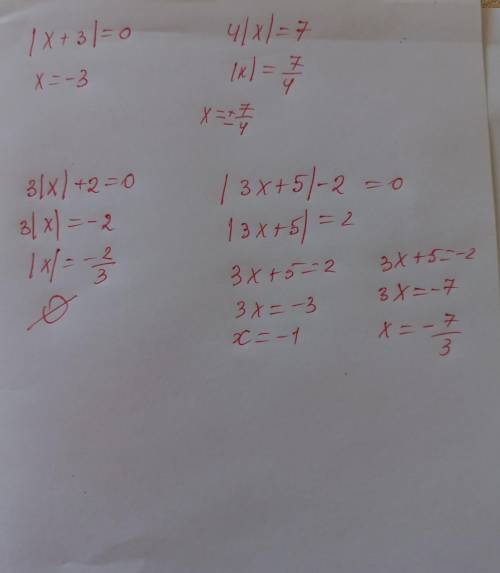 |x+3|=0
x=-3
4|x|=7
|x|=7/4
x=±7/4
3|x|+2=0
3|x|=-2
|x|=-2/3
∅
|3x+5|-2=0
|3x+5|=2
3x+5=2
3x=-3
x=-1
3x+5=-2
3x=-7
x=-7/3